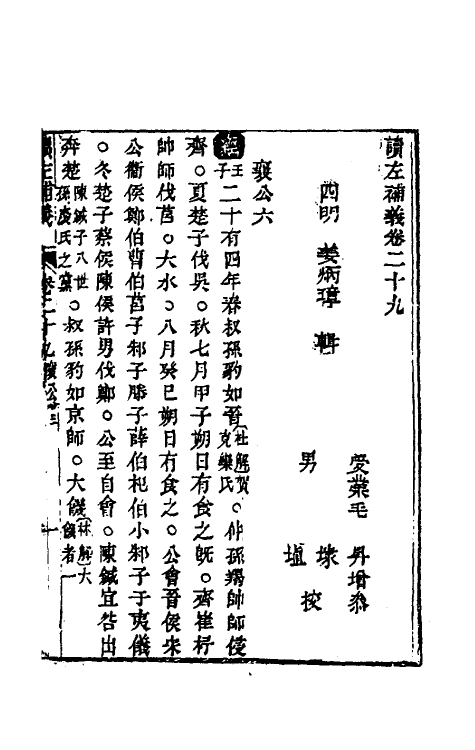 讀左補義卷二十九
四明 姜炳璋 輯
受業毛 昇增參
男 埰 校
壚
襄公六
經壬子二十有四年春叔孫豹如晉杜解賀克欒氏○仲孫羯帥師侵
齊○夏楚子伐吳○秋七月甲子朔日有食之旣○齊崔杼
帥師伐莒○大水○八月癸巳朔日有食之○公會晉侯宋
公衞侯鄭伯曹伯莒子邾子滕子薛伯杞伯小邾子于夷儀
○冬楚子蔡侯陳侯許男伐鄭○公至自會○陳鍼宜咎出
奔楚陳鍼子八世孫慶氏之黨○叔孫豹如京師○大饑林解大饑者一
讀左補義 卷二十九 襄公 一